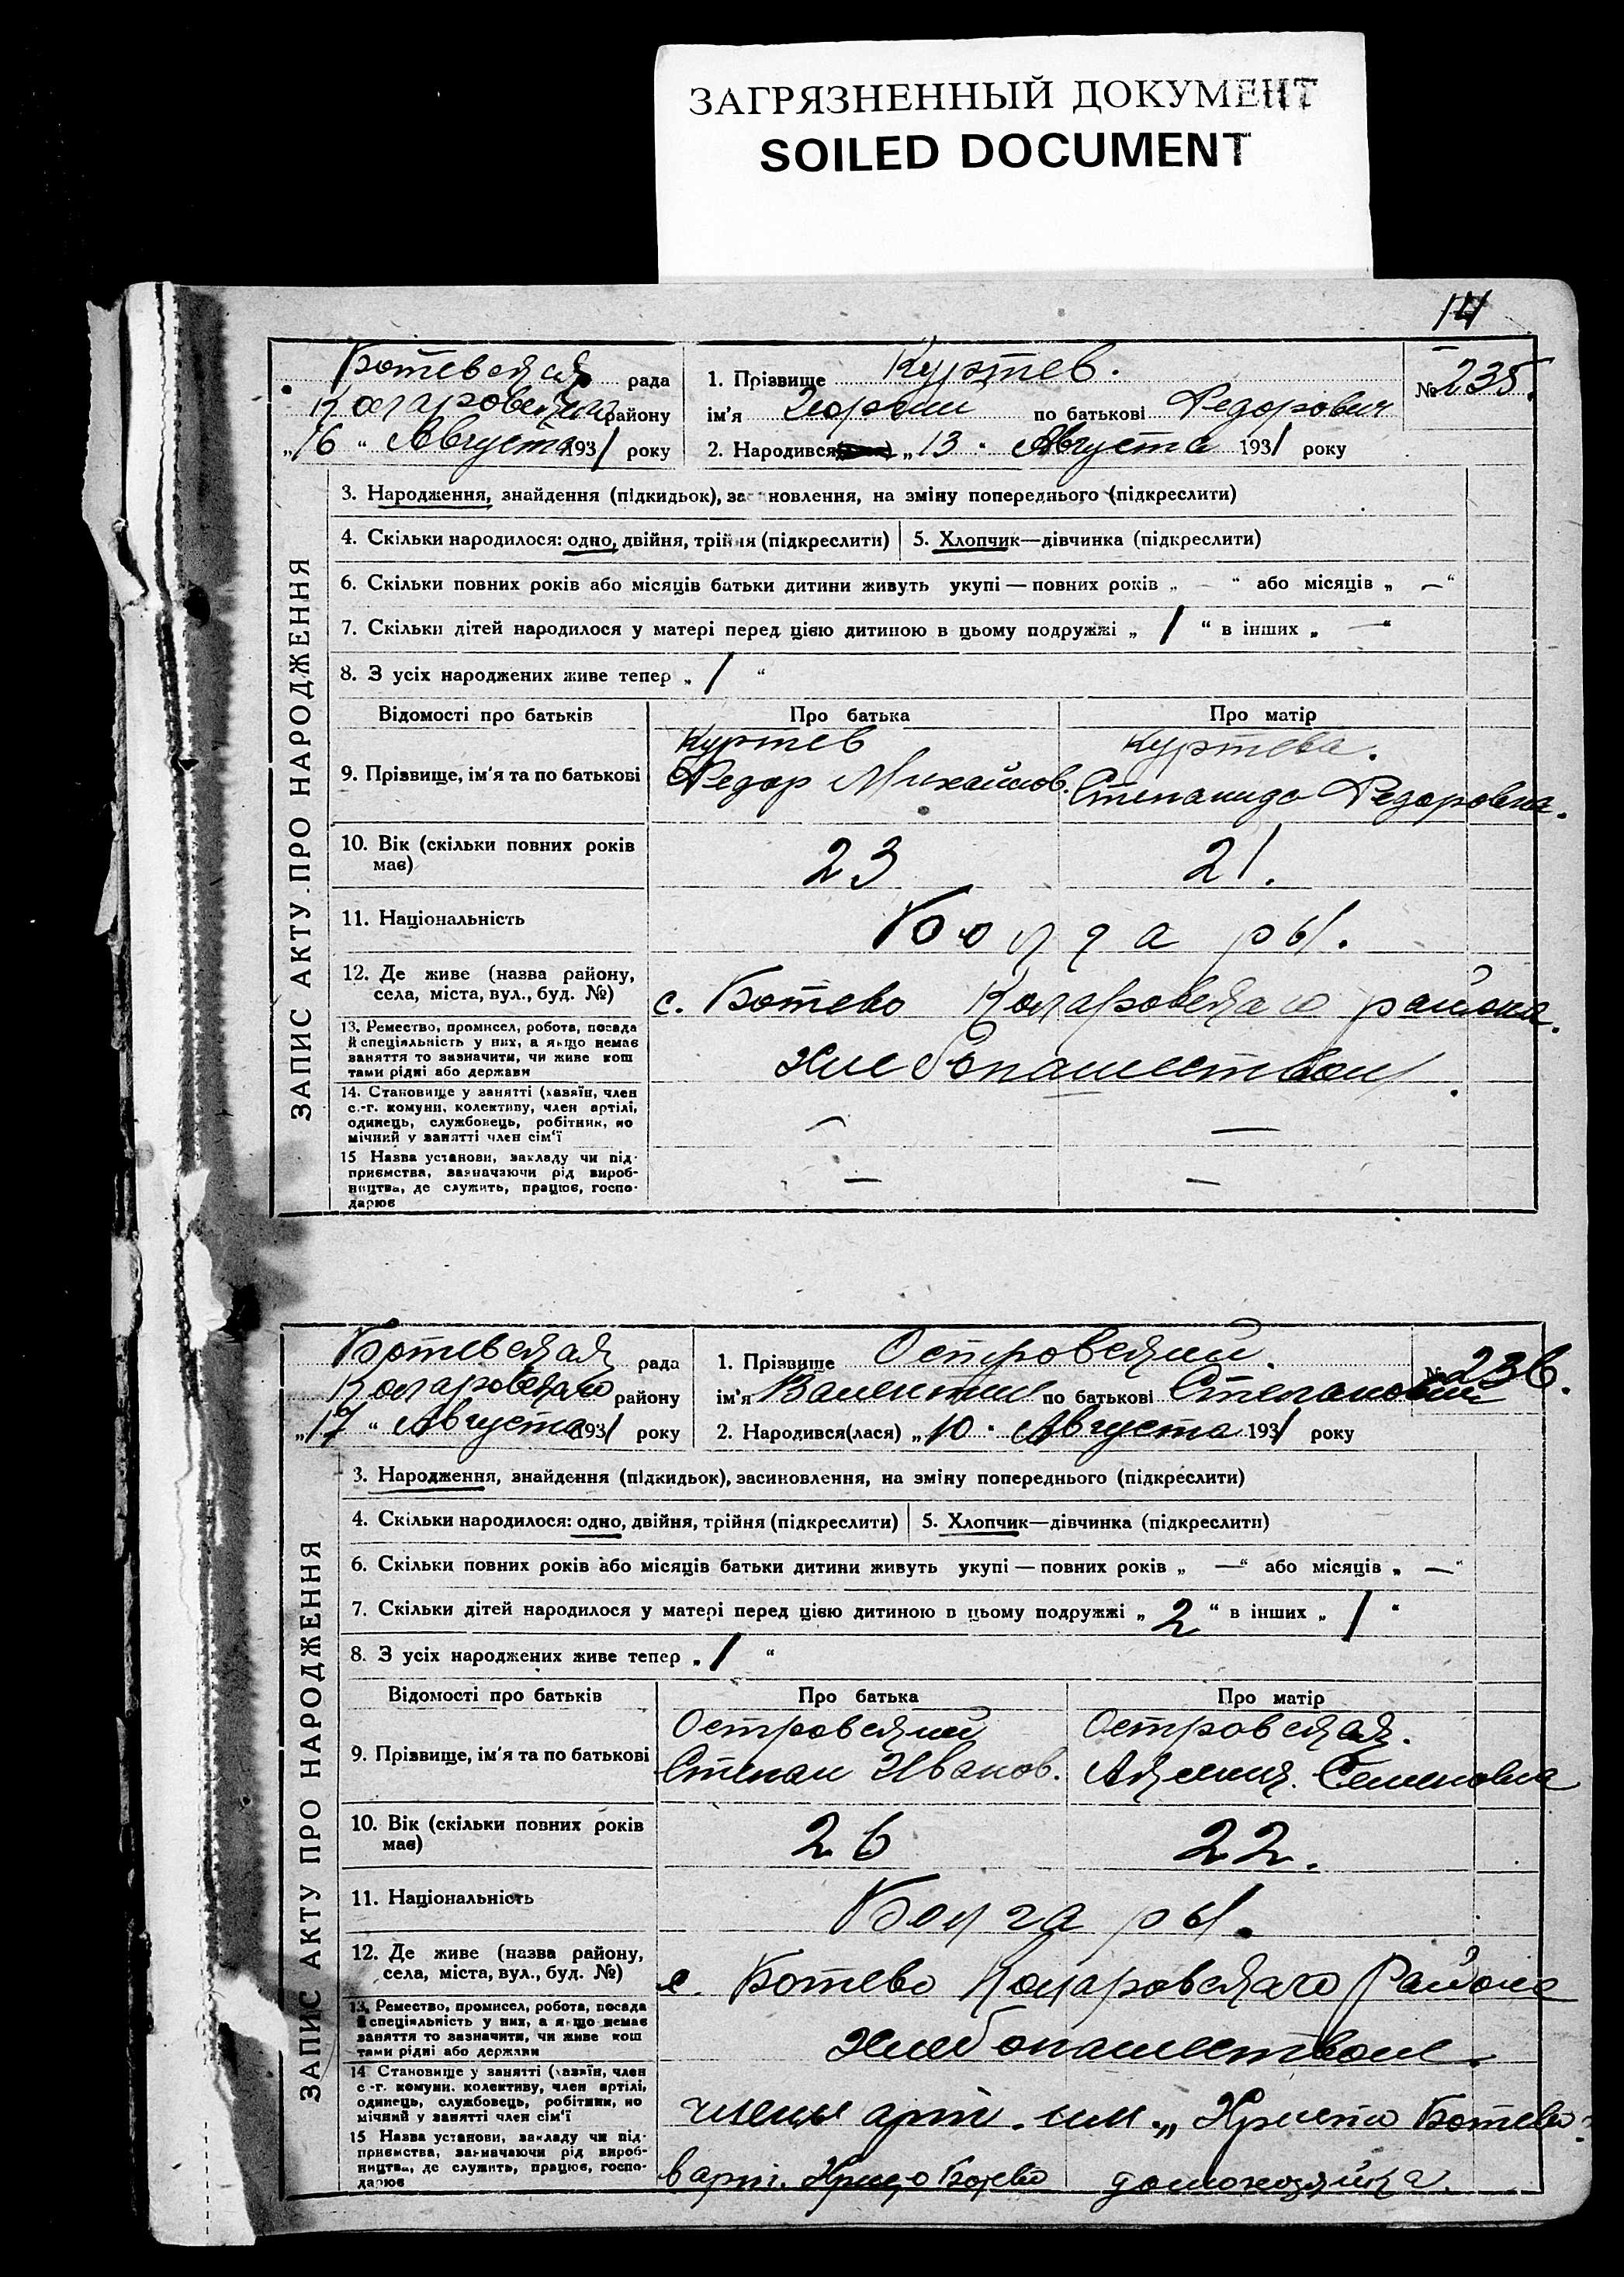 ЗАГРЯЗНЕННЫЙ ДОКУМЕНТ
SOILED DOCUMENT
14
Ботевская рада
Коларовского району
„16“ Августа 1931 року
1. Прізвище Куртев.
ім'я Георгий по батькові Федорович
2. Народився „13“ Августа 1931 року
№ 235.
ЗАПИС АКТУ ПРО НАРОДЖЕННЯ
3. Народження, знайдення (підкидьок), засиновлення, на зміну попереднього (підкреслити)
4. Скільки народилося: одно, двійня, трійня (підкреслити) 5. Хлопчик—дівчинка (підкреслити)
6. Скільки повних років або місяців батьки дитини живуть укупі — повних років „ — “ або місяців „ — “
7. Скільки дітей народилося у матері перед цією дитиною в цьому подружжі „ 1 “ в інших „ — “
8. З усіх народжених живе тепер „ 1 “
Відомості про батьків Про батька Про матір
9. Прізвище, ім'я та по батькові
Куртев Куртева.
Федор Михайлов. Степанида Федоровна.
10. Вік (скільки повних років
має)
23 21.
11. Національність
Болгары.
12. Де живе (назва району,
села, міста, вул., буд. №)
с. Ботево Коларовскаго района.
13. Ремество, промисел, робота, посада
й спеціяльність у них, а якщо немає
заняття то зазначити, чи живе кош
тами рідні або держави
Хлебопашеством.
14. Становище у занятті (хазяїн, член
с.-г. комуни, колективу, член артілі,
одинець, службовець, робітник, по
мічний у занятті член сім'ї
— —
15 Назва установи, закладу чи під-
приємства, зазначаючи рід вироб-
ництва, де служить, працює, госпо-
дарює
— —
Ботевская рада
Коларовскаго району
„17“ Августа 1931 року
1. Прізвище Островский.
ім'я Валентин по батькові Степанович
2. Народився(лася) „10“ Августа 1931 року
№ 236.
ЗАПИС АКТУ ПРО НАРОДЖЕННЯ
3. Народження, знайдення (підкидьок), засиновлення, на зміну попереднього (підкреслити)
4. Скільки народилося: одно, двійня, трійня (підкреслити) 5. Хлопчик—дівчинка (підкреслити)
6. Скільки повних років або місяців батьки дитини живуть укупі — повних років „ — “ або місяців „ — “
7. Скільки дітей народилося у матері перед цією дитиною в цьому подружжі „ 2 “ в інших „ 1 “
8. З усіх народжених живе тепер „ 1 “
Відомості про батьків Про батька Про матір
9. Прізвище, ім'я та по батькові
Островский Островская.
Степан Иванов. Семеновна
10. Вік (скільки повних років
має)
26 22.
11. Національність
Болгары.
12. Де живе (назва району,
села, міста, вул., буд. №)
с. Ботево Коларовскаго Района
13. Ремество, промисел, робота, посада
й спеціяльність у них, а якщо немає
заняття то зазначити, чи живе кош
тами рідні або держави
Хлебопашеством.
14 Становище у занятті (хазяїн, член
с.-г. комуни, колективу, член артілі,
одинець, службовець, робітник, по
мічний у занятті член сім'ї
члены арт. им. „Христо Ботево
15 Назва установи, закладу чи під-
приємства, зазначаючи рід вироб-
ництва, де служить, працює, госпо-
дарює
в арт. Христо Ботево домохозяйка.